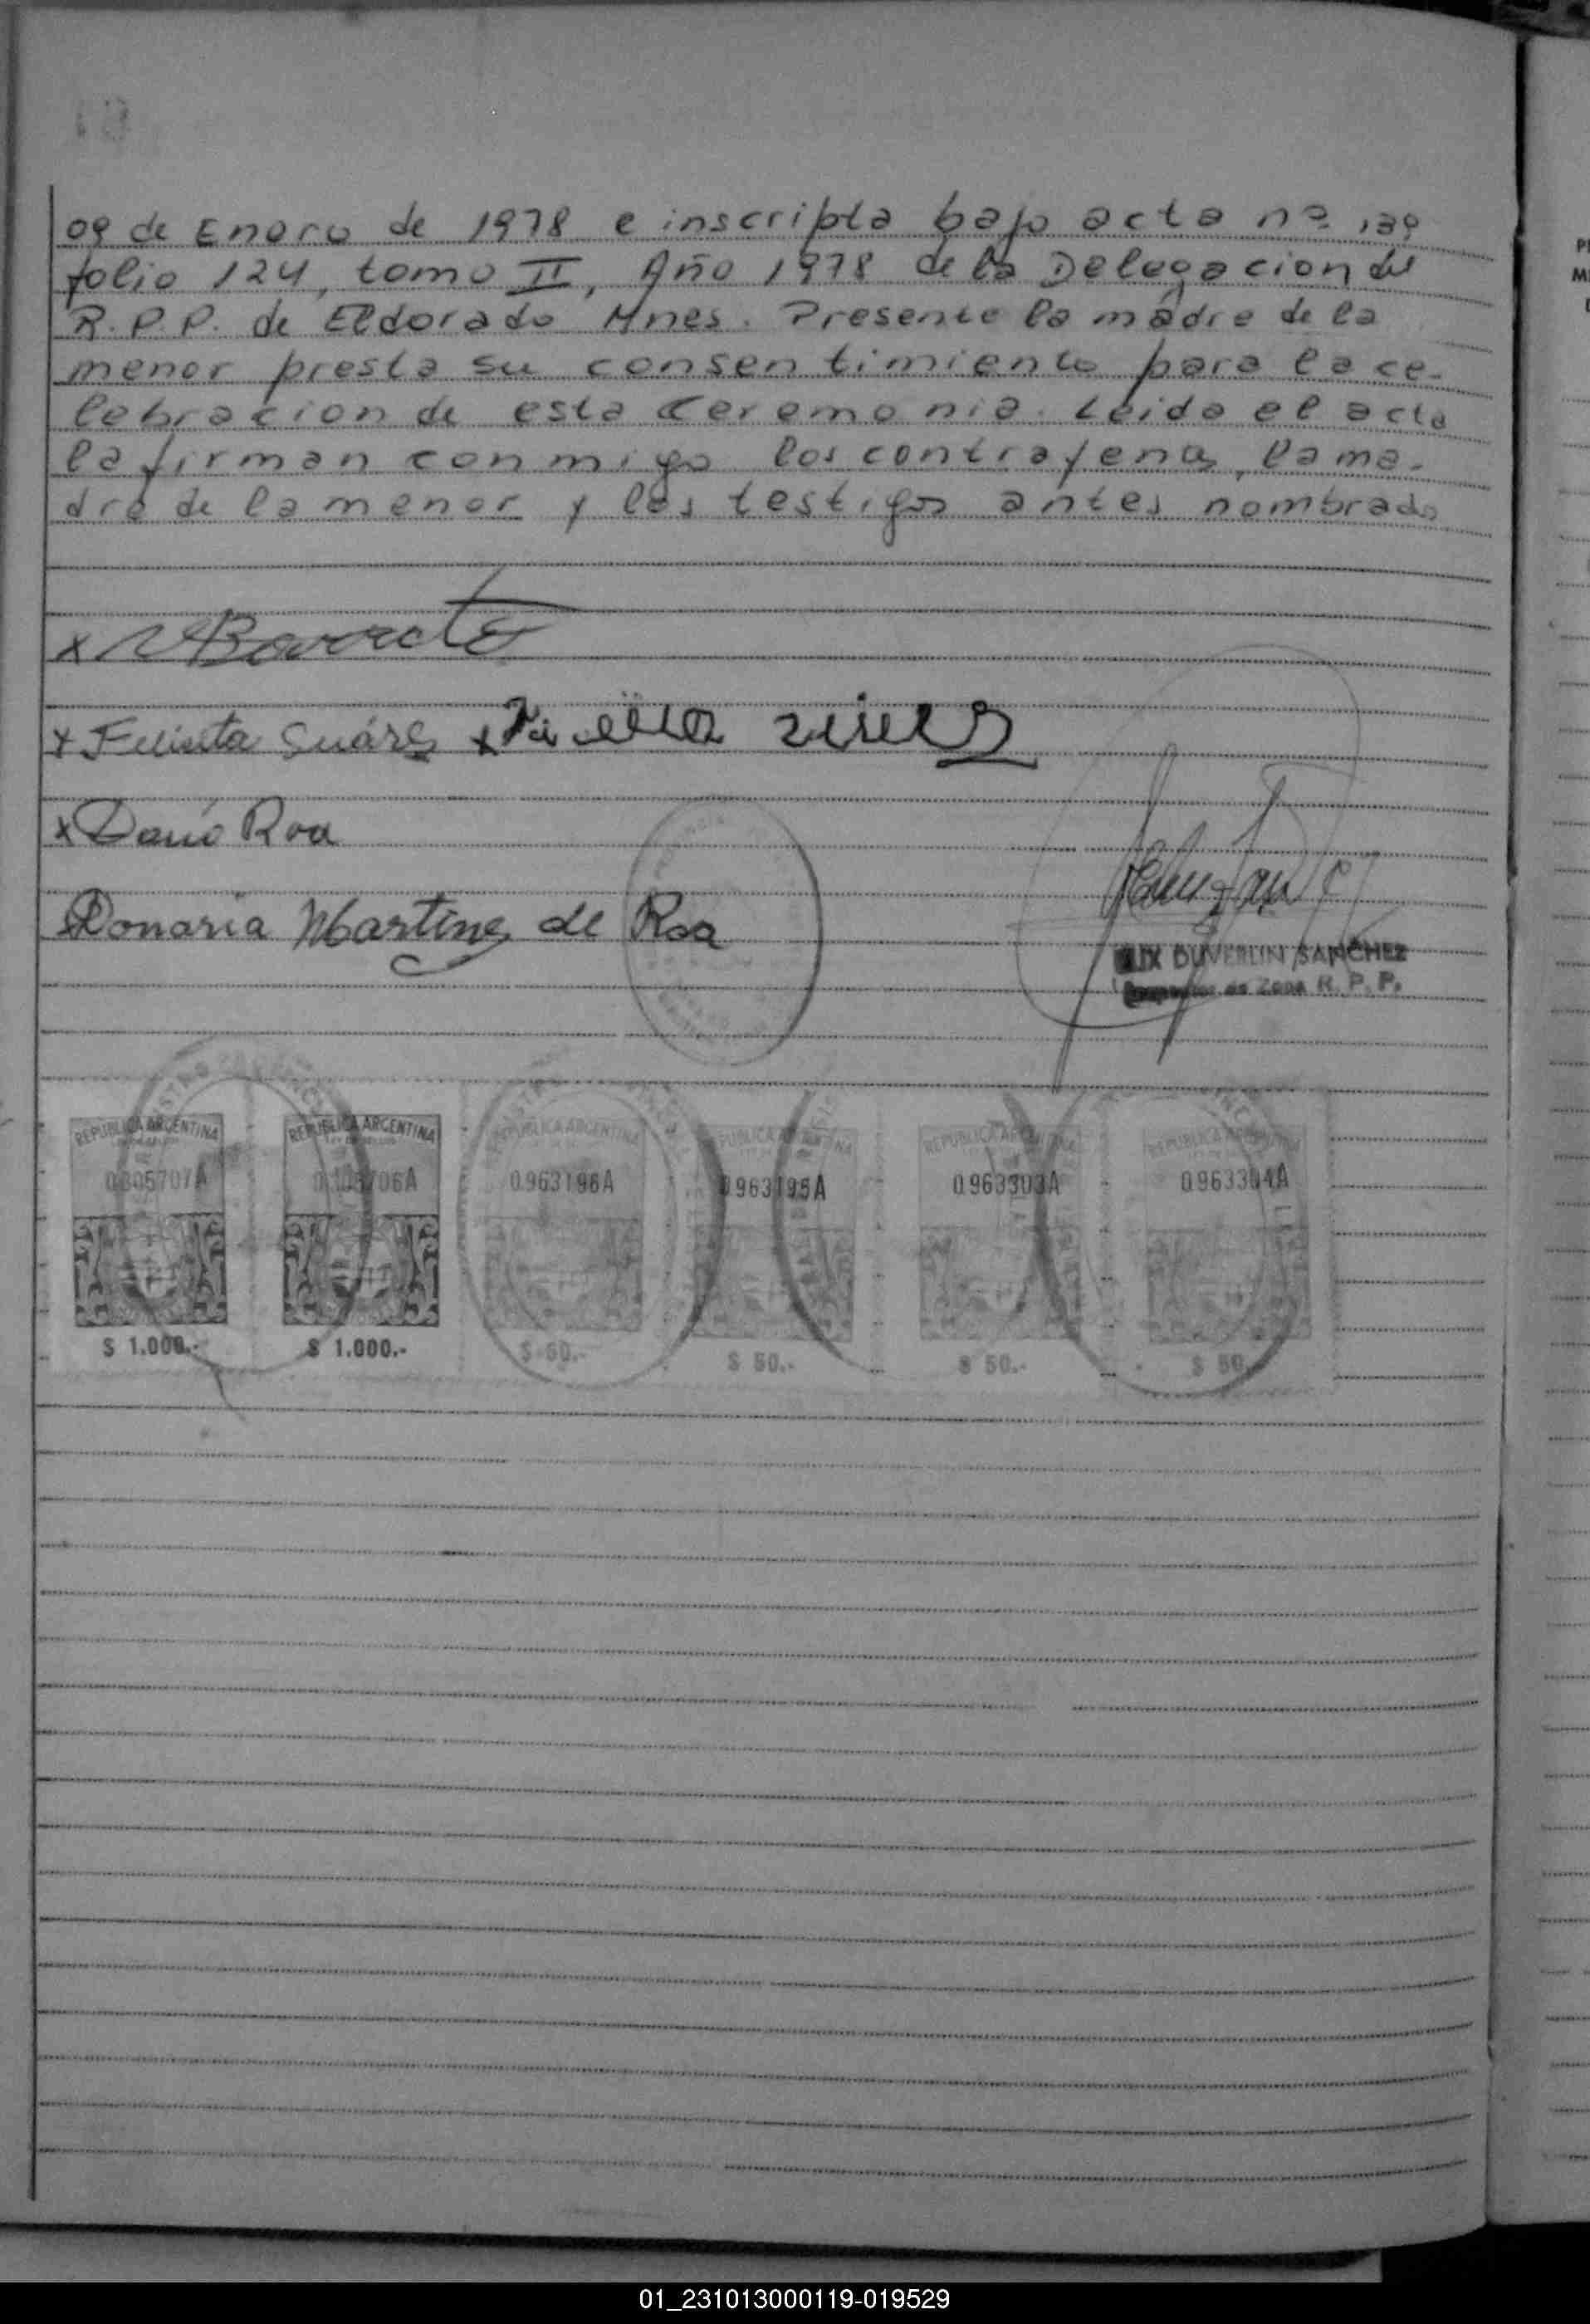 09 de Enero de 1978 e inscripta bajo acta nº 139
folio 124, tomo II, Año 1978 de la Delegacion del
R.P.P. de Eldorado Mnes. Presente la madre de la
menor presta su consentimiento para la ce-
lebracion de esta ceremonia. Leida el acta
la firman conmigo los contrayentes, la ma-
dre de la menor y los testigos antes nombrados
x Barreto
x Suárez x
x Darío Roa
Donaria Martinez de Roa
DUVERLIN SANCHEZ
de Zona R. P. P.
REPUBLICA ARGENTINA REPUBLICA ARGENTINA REPUBLICA ARGENTINA REPUBLICA ARGENTINA REPUBLICA ARGENTINA REPUBLICA ARGENTINA
0.963196A 0.963195A 0.963303A 0.963304A
$ 1.000.- $ 1.000.- $ 50.- $ 50.- $ 50.- $ 50.-
01_231013000119-019529